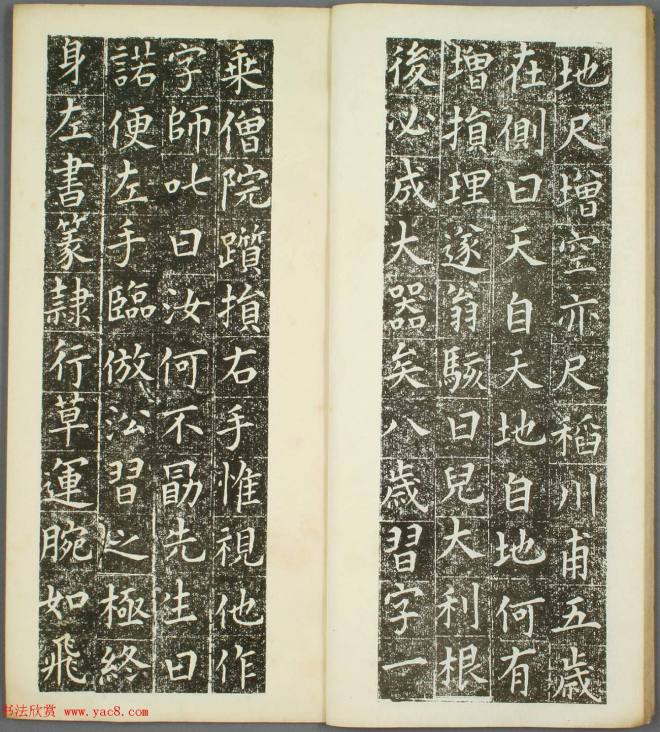 地尺增空亦尺稻川甫五歲
在側曰天自天地自地何有
增損理遂翁駭曰兒大利根
後必成大器矣八歲習字一
乘僧院躓損右手惟視他作
字師叱曰汝何不勗先生曰
諾便左手臨倣㳂習之極終
身左書篆隸行草運腕如飛
书法欣赏 www.yac8.com